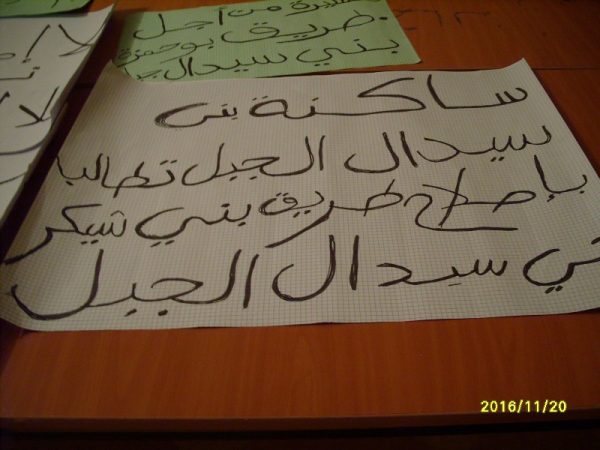 من أجل
طريق بوحمزة
بني سيدال
ساكنة بني
سيدال الجبل تطالب
بإصلاح طريق بني شيكر
ني سيدال الجبل
2016/11/20